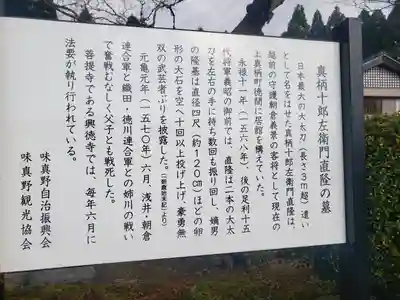 真柄十郎左衛門直隆の墓
日本最大の大太刀(長さ3m超)遣い
として名をはせた真柄十郎左衛門直隆は、
越前の守護朝倉義景の客将として現在の
上真柄町徳間に居館を構えていた。
永禄十一年(一五六八年)、後の足利十五
代将軍義昭の御前では、直隆は二本の大太
刀を左右の手に持ち数回も振り回し、嫡男
の隆基は直径四尺(約120㎝)ほどの卵
形の大石を空へ十回以上投げ上げ、豪勇無
双の武芸者ぶりを披露した。(「朝倉始末記」より)
元亀元年(一五七〇年)六月、浅井・朝倉
連合軍と織田・徳川連合軍との姉川の戦い
で奮戦むなしく父子とも戦死した。
菩提寺である興徳寺では、毎年六月に
法要が執り行われている。
味真野自治振興会
味真野観光協会